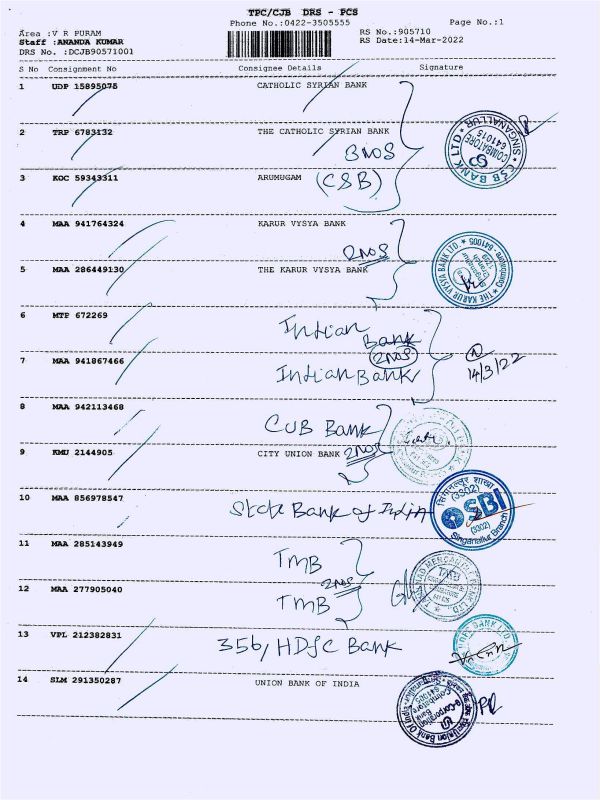 TPC/CJB DRS - PCS
Phone No.:0422-3505555 Page No.:1
Area :V R PURAM RS No.:905710
Staff :ANANDA KUMAR RS Date:14-Mar-2022
DRS No. :DCJB90571001
S No Consignment No Consignee Details Signature
1 UDP 15895075 CATHOLIC SYRIAN BANK
2 TRP 6783132 THE CATHOLIC SYRIAN BANK
3NOS
3 KOC 59343311 ARUMUGAM (CSB)
CSB BANK LTD * SINGANALLUR *
COIMBATORE
641015
4 MAA 941764324 KARUR VYSYA BANK
2NOS
5 MAA 286449130 THE KARUR VYSYA BANK
THE KARUR VYSYA BANK LTD. * Coimbatore - 641005 *
Singanallur
Branch
1209
6 MTP 672269 Indian Bank
2NOS
7 MAA 941867466 Indian Bank
14/3/22
8 MAA 942113468 CUB Bank
9 KMU 2144905 CITY UNION BANK 2NOS
10 MAA 856978547 State Bank of India
सिंगानल्लूर शाखा
(3302)
SBI
(3302)
Singanallur Branch
11 MAA 285143949 TMB
2NOS
12 MAA 277905040 TMB
TAMILNAD MERCANTILE BANK LTD.
TMB
13 VPL 212382831 356, HDFC Bank
HDFC BANK LTD.
14 SLM 291350287 UNION BANK OF INDIA
Union Bank Of India
e-Corporation Bank
Coimbatore
641005
PR